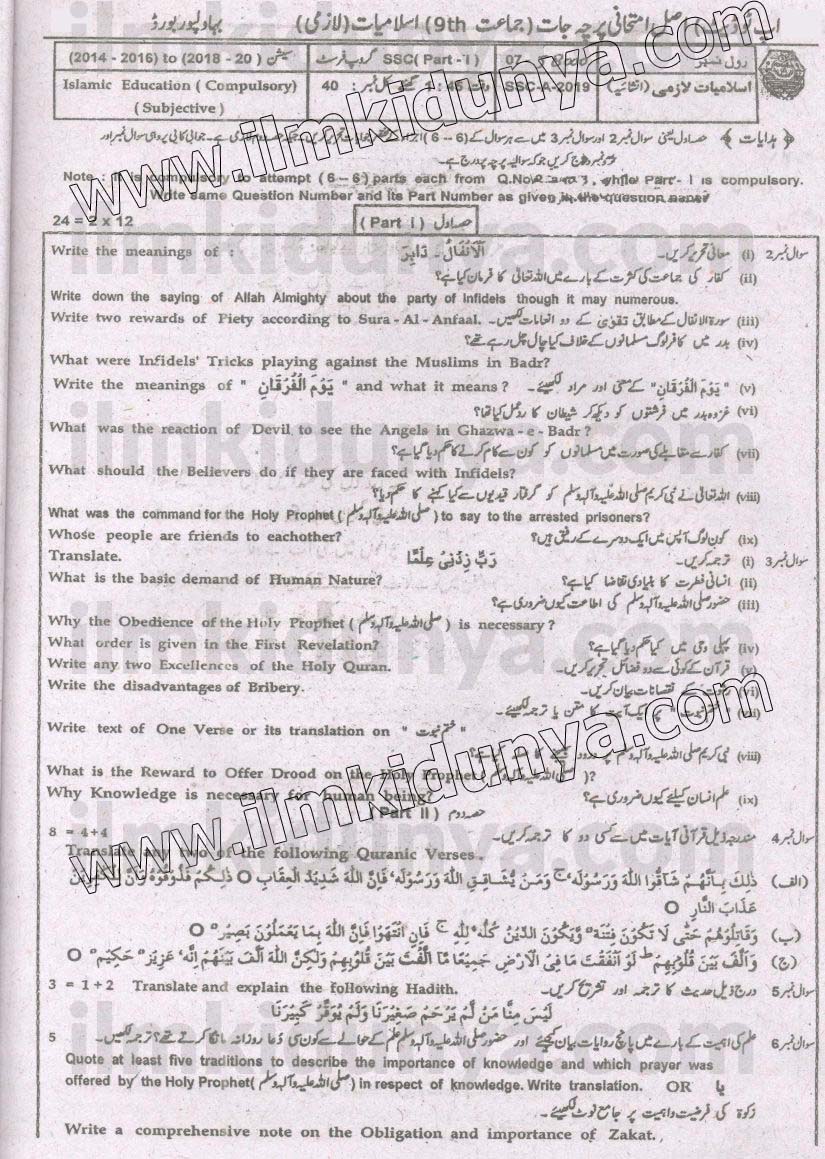 اصلی امتحانی پرچہ جات (جماعت 9th) اسلامیات (لازمی) بہاولپور بورڈ
رول نمبر 07 SSC( Part - I ) گروپ فرسٹ سیشن (2014 - 2016) to (2018 - 20)
اسلامیات لازمی (انشائیہ) SSC-A-2019 وقت 1:45 گھنٹے کل نمبر: 40 Islamic Education ( Compulsory)
( Subjective )
﴿ ہدایات ﴾ حصہ اول یعنی سوال نمبر 2 اور سوال نمبر 3 میں سے ہر سوال کے (6 - 6)
درج کریں جو کہ سوالیہ پرچہ پر درج ہے۔
Note : It is compulsory to attempt ( 6 – 6) parts each from Q.No. while Part - I is compulsory.
Write same Question Number and its Part Number as given in the question paper
24 = 2 x 12 ( Part I ) حصہ اول
سوال نمبر 2 (i) معانی تحریر کریں۔ اَلْاَنْفَالُ ۔ دَابِرَ Write the meanings of :
(ii) کفار کی جماعت کی کثرت کے بارے میں اللہ تعالیٰ کا فرمان کیا ہے؟
Write down the saying of Allah Almighty about the party of Infidels though it may numerous.
(iii) سورۃ الانفال کے مطابق تقویٰ کے دو انعامات لکھیں۔ Write two rewards of Piety according to Sura - Al - Anfaal.
(iv) بدر میں کافر لوگ مسلمانوں کے خلاف کیا چال چل رہے تھے؟
What were Infidels' Tricks playing against the Muslims in Badr?
(v) "یَوْمَ الْفُرْقَانِ" کے معنی اور مراد لکھیئے۔ Write the meanings of " یَوْمَ الْفُرْقَانِ " and what it means ?
(vi) غزوہ بدر میں فرشتوں کو دیکھ کر شیطان کا ردعمل کیا تھا؟
What was the reaction of Devil to see the Angels in Ghazwa - e - Badr ?
(vii) کفار سے مقابلے کی صورت میں مسلمانوں کو کون سے کام کرنے کا حکم دیا گیا ہے؟
What should the Believers do if they are faced with Infidels?
(viii) اللہ تعالیٰ نے نبی کریم صلی اللہ علیہ وآلہ وسلم کو گرفتار قیدیوں سے کیا کہنے کا حکم دیا؟
What was the command for the Holy Prophet ( صلی اللہ علیہ وآلہ وسلم ) to say to the arrested prisoners?
(ix) کون لوگ آپس میں ایک دوسرے کے رفیق ہیں؟ Whose people are friends to eachother?
سوال نمبر 3 (i) ترجمہ کریں۔ رَبِّ زِدْنِیْ عِلْمًا Translate.
(ii) انسانی فطرت کا بنیادی تقاضا کیا ہے؟ What is the basic demand of Human Nature?
(iii) حضور صلی اللہ علیہ وآلہ وسلم کی اطاعت کیوں ضروری ہے؟
Why the Obedience of the Holy Prophet ( صلی اللہ علیہ وآلہ وسلم ) is necessary ?
(iv) پہلی وحی میں کیا حکم دیا گیا ہے؟ What order is given in the First Revelation?
(v) قرآن کے کوئی سے دو فضائل تحریر کریں۔ Write any two Excellences of the Holy Quran.
(vi) کے نقصانات بیان کریں۔ Write the disadvantages of Bribery.
ایک آیت کا متن یا ترجمہ لکھیئے۔
Write text of One Verse or its translation on " ختم نبوت "
(viii) نبی کریم صلی اللہ علیہ وآلہ وسلم
What is the Reward to Offer Drood on the Holy Prophet ( )?
(ix) علم انسان کیلئے کیوں ضروری ہے؟ Why Knowledge is necessary for human being?
( Part II ) حصہ دوم
سوال نمبر 4 مندرجہ ذیل قرآنی آیات میں سے کسی دو کا ترجمہ کریں۔ 8 = 4+4
Translate any two of the following Quranic Verses .
(الف) ذٰلِکَ بِاَنَّہُمْ شَآقُّوا اللّٰہَ وَرَسُوْلَہٗ ۚ وَمَنْ یُّشَاقِقِ اللّٰہَ وَرَسُوْلَہٗ فَاِنَّ اللّٰہَ شَدِیْدُ الْعِقَابِ O ذٰلِکُمْ فَذُوْقُوْہُ وَاَنَّ لِلْکٰفِرِیْنَ
عَذَابَ النَّارِ O
(ب) وَقَاتِلُوْہُمْ حَتّٰی لَا تَکُوْنَ فِتْنَۃٌ وَّیَکُوْنَ الدِّیْنُ کُلُّہٗ لِلّٰہِ ۚ فَاِنِ انْتَہَوْا فَاِنَّ اللّٰہَ بِمَا یَعْمَلُوْنَ بَصِیْرٌ O
(ج) وَاَلَّفَ بَیْنَ قُلُوْبِہِمْ ؕ لَوْ اَنْفَقْتَ مَا فِی الْاَرْضِ جَمِیْعًا مَّا اَلَّفْتَ بَیْنَ قُلُوْبِہِمْ وَلٰکِنَّ اللّٰہَ اَلَّفَ بَیْنَہُمْ اِنَّہٗ عَزِیْزٌ حَکِیْمٌ O
سوال نمبر 5 درج ذیل حدیث کا ترجمہ اور تشریح کریں۔ 3 = 1 + 2 Translate and explain the following Hadith.
لَیْسَ مِنَّا مَنْ لَّمْ یَرْحَمْ صَغِیْرَنَا وَلَمْ یُوَقِّرْ کَبِیْرَنَا
سوال نمبر 6 علم کی اہمیت کے بارے میں پانچ روایات بیان کیجئے اور حضور صلی اللہ علیہ وآلہ وسلم علم کے حوالے سے کون سی دُعا روزانہ مانگا کرتے تھے؟ ترجمہ لکھیں۔ 5
Quote at least five traditions to describe the importance of knowledge and which prayer was
offered by the Holy Prophet( صلی اللہ علیہ وآلہ وسلم ) in respect of knowledge. Write translation. OR یا
زکوٰۃ کی فرضیت و اہمیت پر جامع نوٹ لکھیئے۔
Write a comprehensive note on the Obligation and importance of Zakat.
www.ilmkidunya.com
www.ilmkidunya.com
ilmkidunya.com
ilmkidunya.com
ilmkidunya.com
ilmkidunya.com
ilmkidunya.com